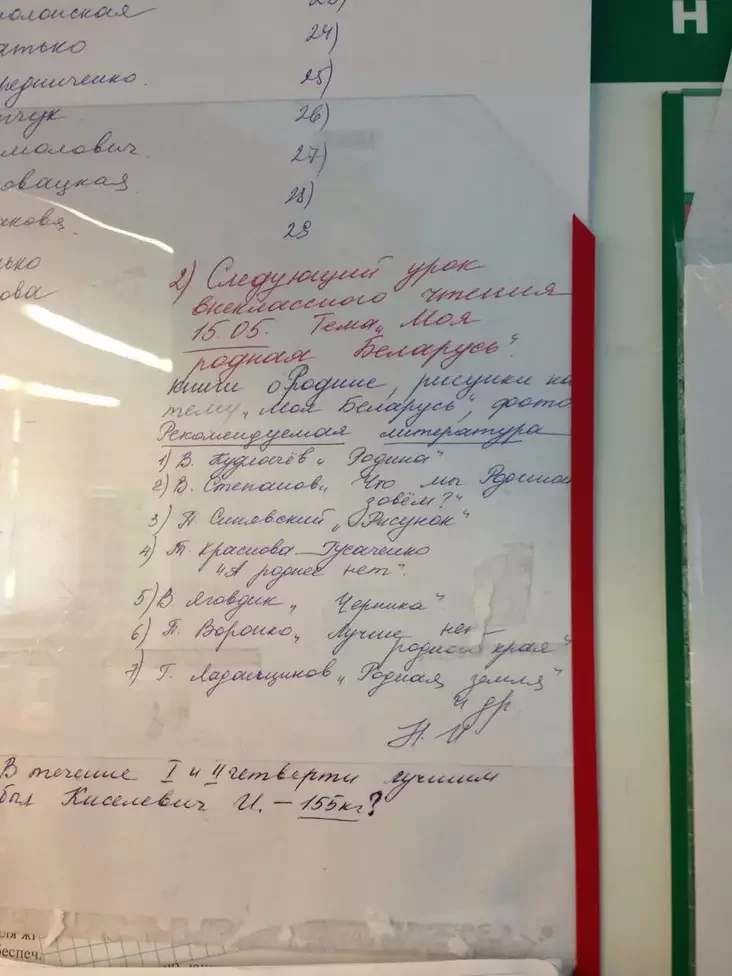 24)
25)
26)
27)
28)
29
Н
2) Следующий урок
внеклассного чтения
15.05. Тема „Моя
родная Беларусь".
книги о Родине, рисунки на
тему „Моя Беларусь", фото
Рекомендуемая литература
1) В. „Родина"
2) В. Степанов „Что мы Родиной
зовём?"
3) П. Синявский „Рисунок"
4) Т. Краснова-Гусаченко
"А роднее нет".
5) В Яговдик „Черника"
6) П. Воронко „Лучше нет
родного края"
7) Г. Ладонщиков „Родная земля"
и др.
В течение I и II четверти лучшим
был Киселевич И. – 155кг?
беспеч.